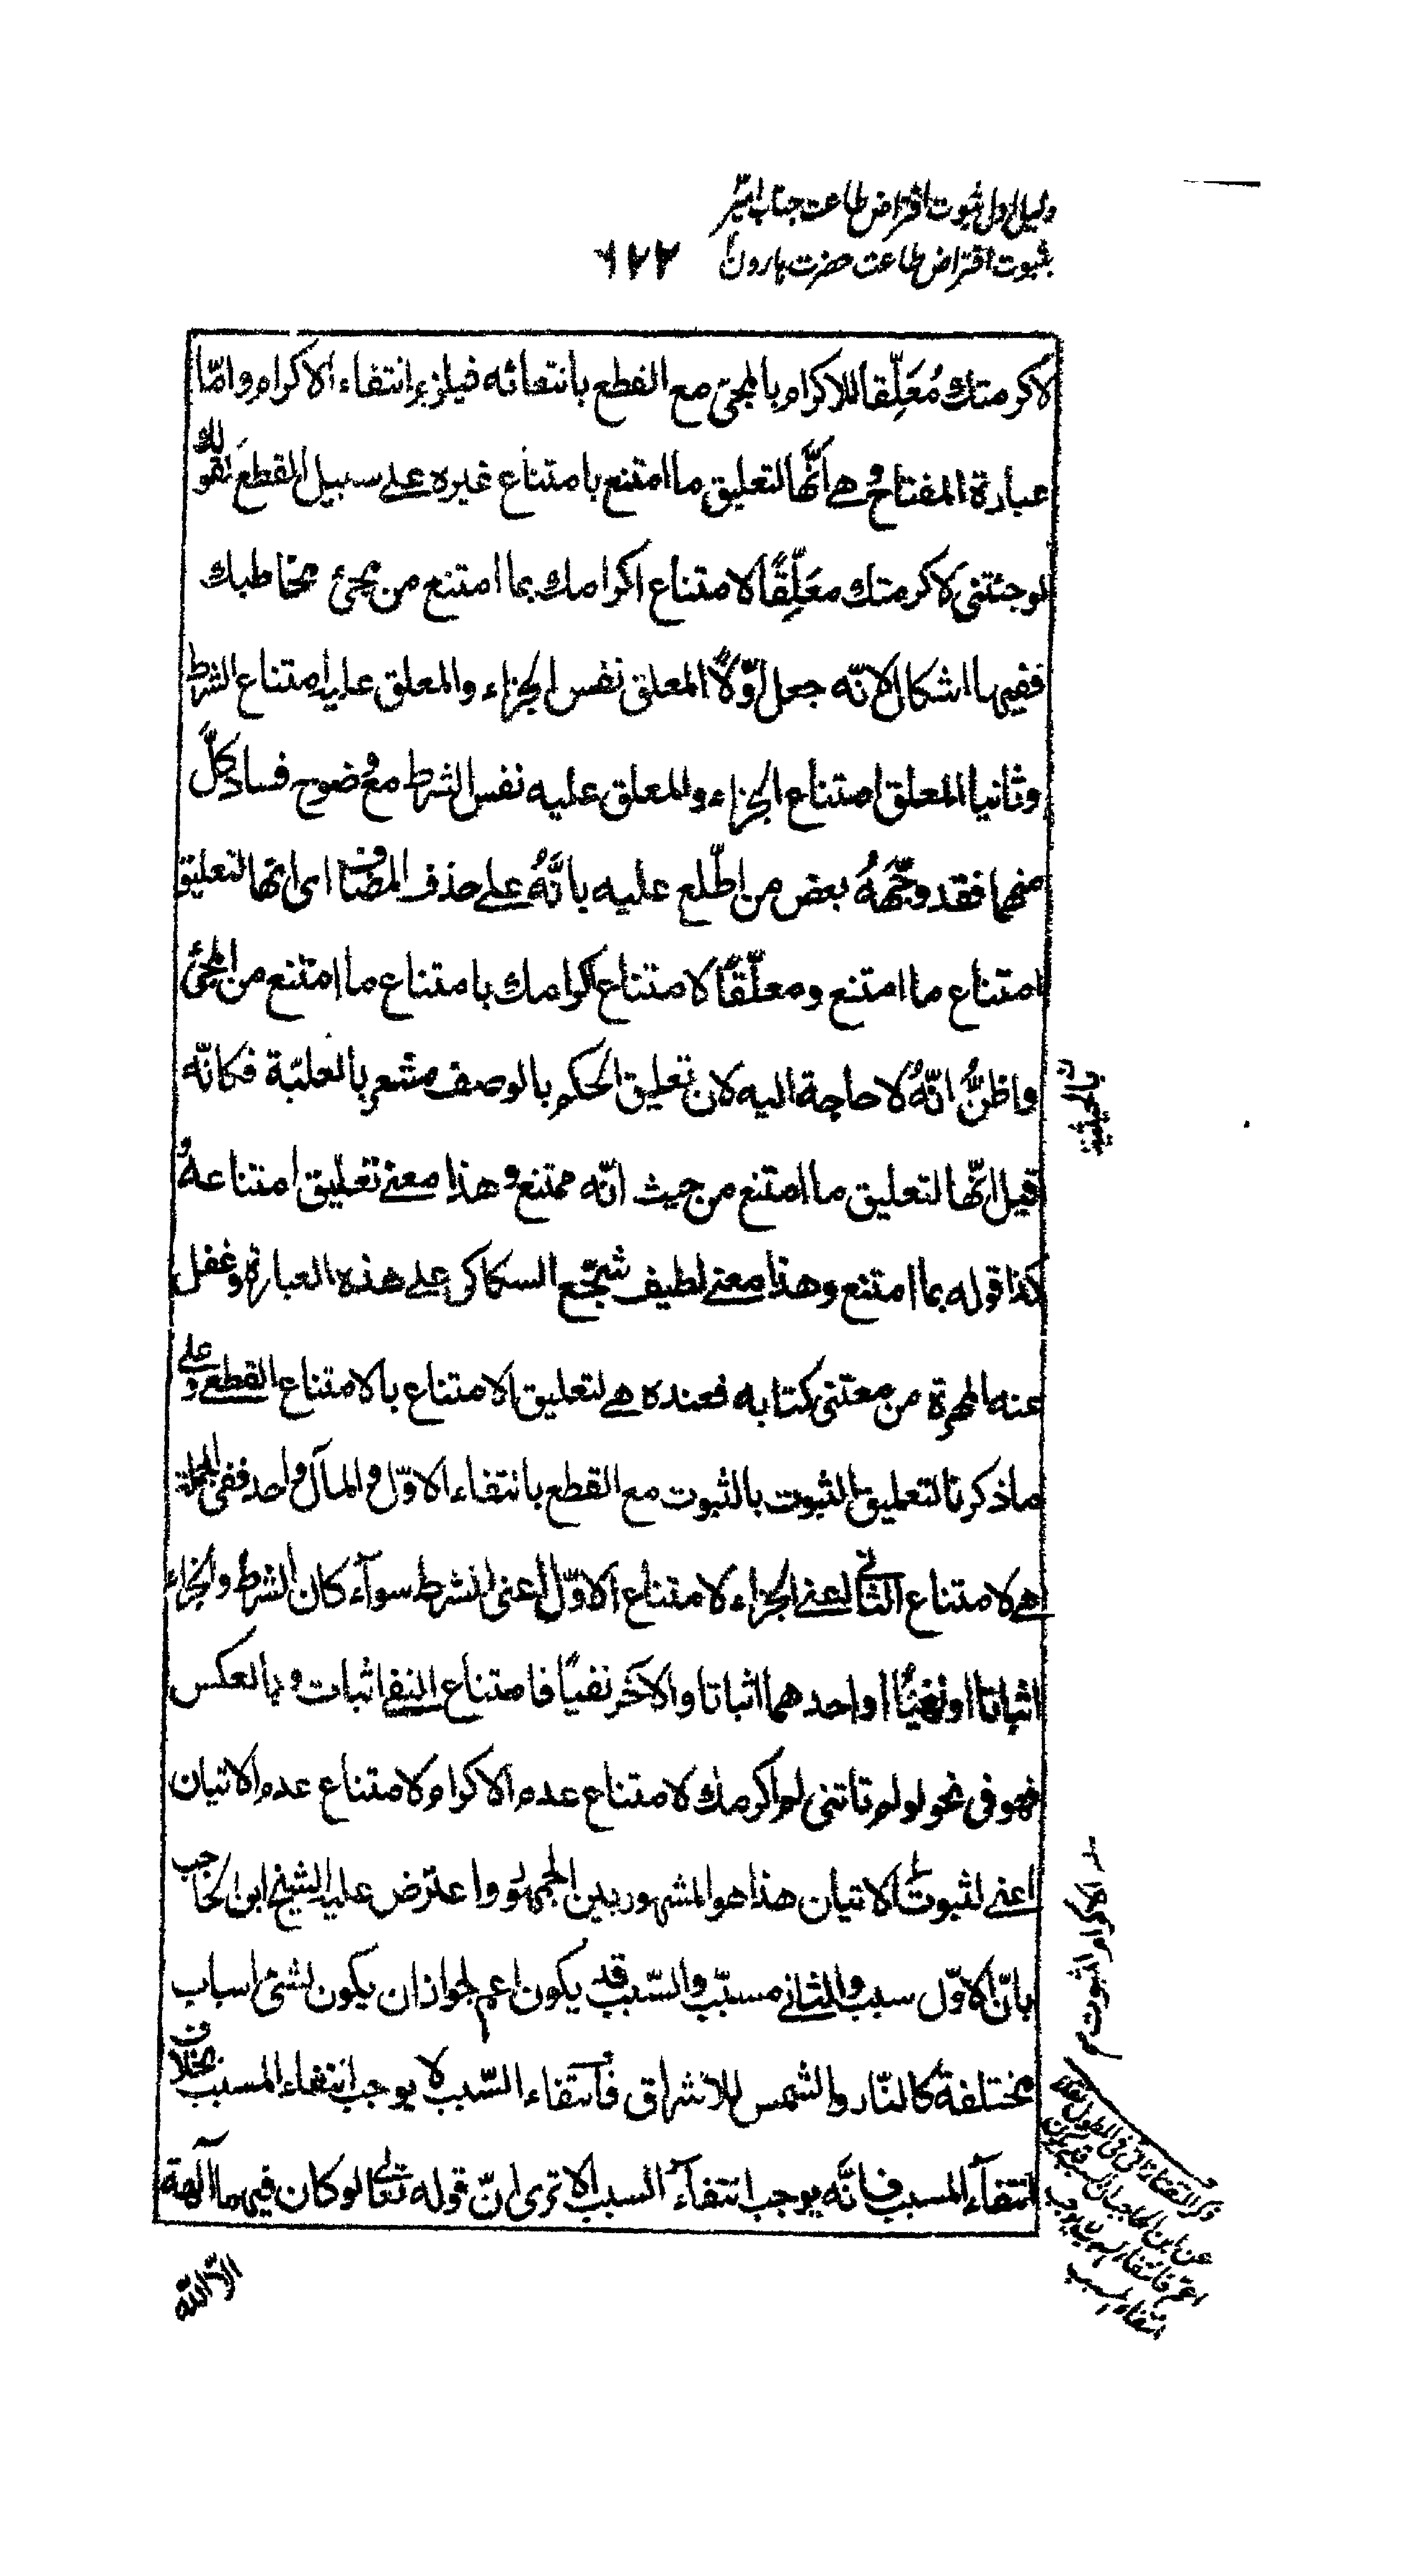 دلیل اول ثبوت افتراض طاعت جناب امیر
بثبوت افتراض طاعت حضرت هارون ۶۲۲
لاكرمتك مُعَلِّقا للاكرام بالمجئ مع القطع بانتفائه فيلزم انتفاء الاكرام وامّا
عبارة المفتاح وهى أنّها لتعليق ما امتنع بامتناع غيره على سبيل القطع تقولك
لوجئتنى لاكرمتك معَلِّقًا لامتناع اكرامك بما امتنع من مجئ مخاطبك
ففيها اشكال لانّه جعل اوّلاً المعلق نفس الجزاء والمعلق عليه امتناع الشرط
وثانيا المعلق امتناع الجزاء والمعلق عليه نفس الشرط مع وضوح فساد كلّ
منهما فقد وجّهَهُ بعض من اطّلع عليه بانّهُ على حذف المضاف اى انها لتعليق
امتناع ما امتنع ومعلّقًا لامتناع اكرامك بامتناع ما امتنع من المجئ
واظنُّ انّهُ لا حاجة اليه لان تعليق الحكم بالوصف مشعر بالعليّة فكانّه
قيل انّها لتعليق ما امتنع من حيث انّه ممتنع وهذا معنى تعليق امتناعه و
كذا قوله بما امتنع وهذا معنى لطيف شجّع السكاكى على هذه العبارة وغفل
عنه المهرة من معتنى كتابه فعنده هى لتعليق الامتناع بالامتناع القطعى وعلى
ما ذكرنا لتعليق الثبوت بالثبوت مع القطع بانتفاء الاوّل والمآل واحد ففى الجملة
هى لامتناع الثانى اعنى الجزاء لامتناع الاوّل اعنى الشرط سوآء كان الشرط والجزاء
اثباتا او نفيًا او احدهما اثباتا والآخر نفيًا فامتناع النفى اثبات وبالعكس
فهو فى نحو لو لم تاتنى لم اكرمك لامتناع عدم الاكرام لامتناع عدم الاتيان
اعنى لثبوت الاتيان هذا هو المشهور بين الجمهور واعترض عليه الشيخ ابن الحاجب
بانّ الاوّل سبب والثانى مسبّب والسّبب قد يكون اعم لجواز ان يكون لشئ اسباب
مختلفة كالنّار والشمس للاشراق فآنتفاء السّبب لا يوجب انتفاء المسبب بخلاف
انتفآء المسبب فانّه يوجب انتفآء السبب الا ترى انّ قوله تعالى لو كان فيهما آلهة
الا الله
بالحيثية
الاكرام لثبوت م
ذكر التفتازانى فى المطول نقلا
عن ابن الحاجب ان السبب قد يكون
اعم فانتفاء السبب لا يوجب
انتفاء المسبب